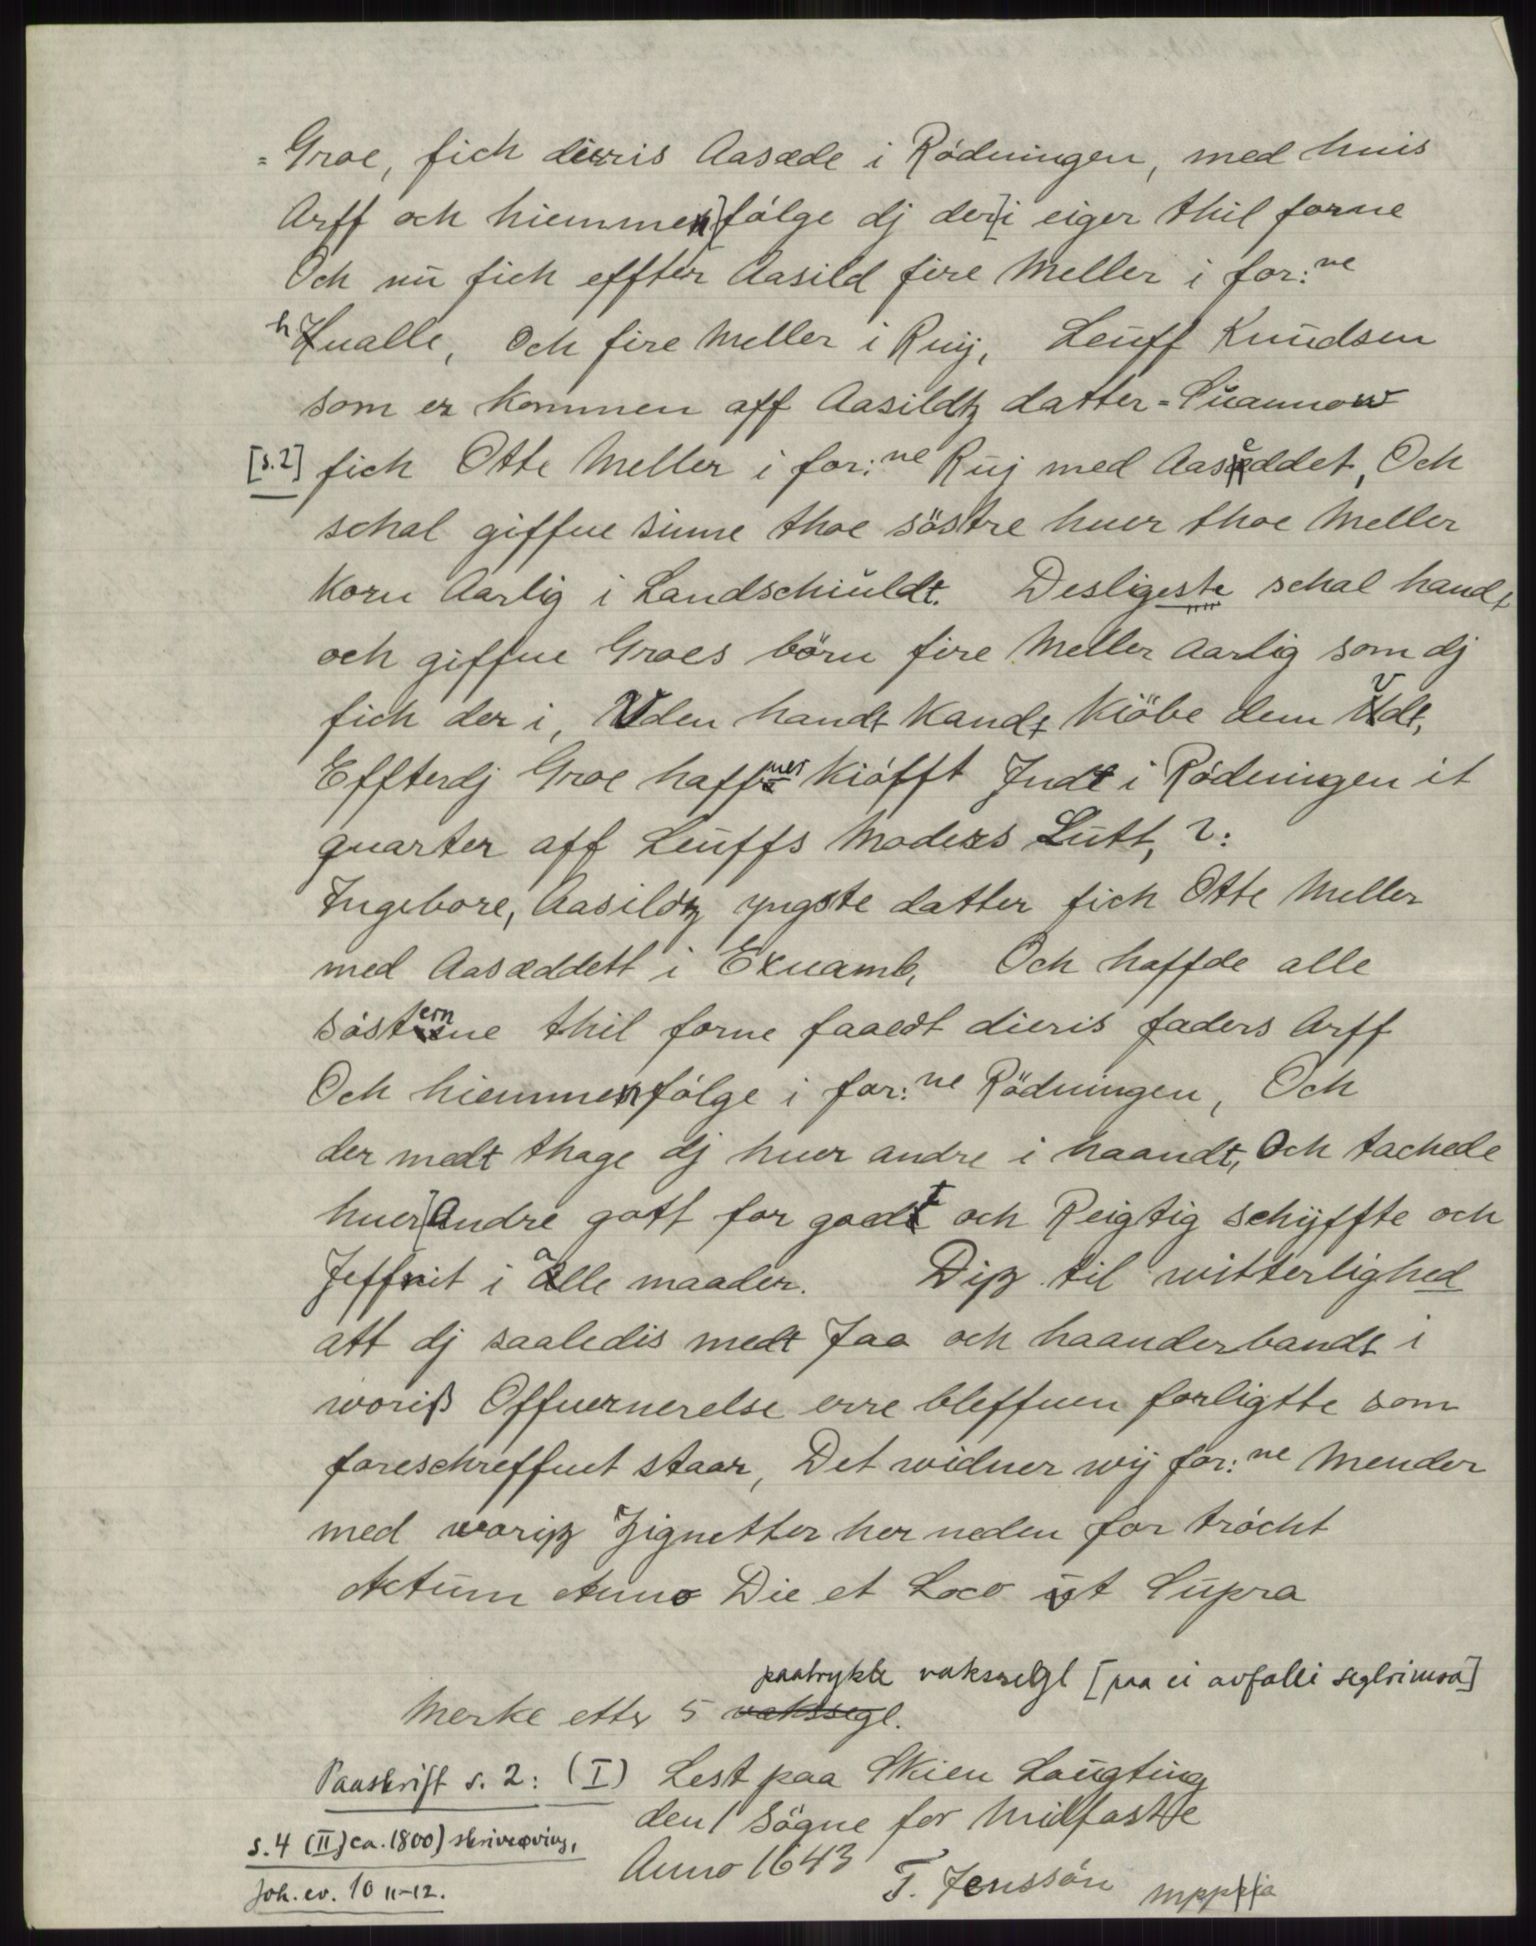 = Groe, fich dieris Aasæde i Rödningen, med huis
Arff och hiemmen]fölge dj der]i eiger thil forne
Och nu fich effter Aasild fire Meller i for:ne
hualle, Och fire Meller i Ruij, Leuff Knudsen
som er kommen aff Aasildtz datter = Suannow
[s.2] fich Otte Meller i for:ne Ruj med Aaseddet, Och
schal giffue sinne thoe söstre huer thoe Meller
Korn Aarlig i Landschiuldt. Desligeste schal handt
och giffue Groes börn fire Meller Aarlig som dj
fich der i, Uden handt Kandt Kiöbe dem Vdt,
Effterdj Groe haffuer Kiöfft Indt i Rödningen it
quarter aff Leuffs Moders Lutt, 2:
Ingebore, Aasildtz yngste datter fich Otte Meller
med Aasæddett i Exuamb, Och haffde alle
sösterne thil forne faaedt dieris faders Arff
Och hiemmenfölge i for:ne Rödningen, Och
der medt thage dj huer andre i haandt, Och tachede
huer]andre gott for godt och Reigtig schijffte och
Jeffnit i alle maader. Diß til witterlighed
att dj saaledis medt Jaa och haanderbandt i
woriß Offuernerelse erre bleffuen forligtte som
foreschreffuet staar, Det widner wij for:ne Mender
med woriß Zignetter her neden for tröcht
Actum Anno Die et Loco ut Supra
paatrykte vakssegl [paa ei avfalli seglrimsa]
Merke etter 5 vakssegl.
Paaskrift s. 2: (I) Lest paa Skien Laugting
den 1 Sögne for Midfaste
s. 4 (II) ca. 1800) skriveøving,
Anno 1643
Joh. ev. 10 11-12.
T. Jenssön mppria